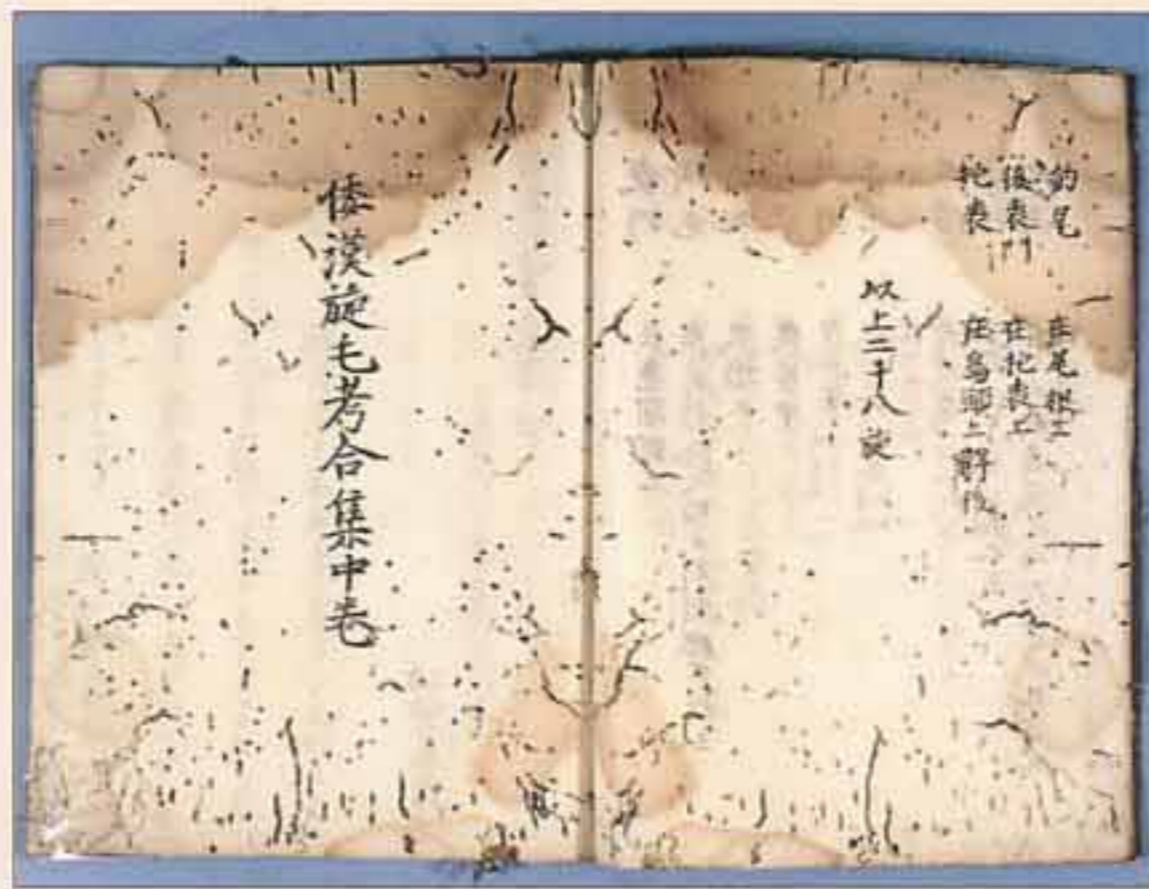 釣尾　在尾根上
後喪門　在拕喪上
拕喪　在烏頭上觧後
以上二十八旋
倭漢旋毛考合集中巻